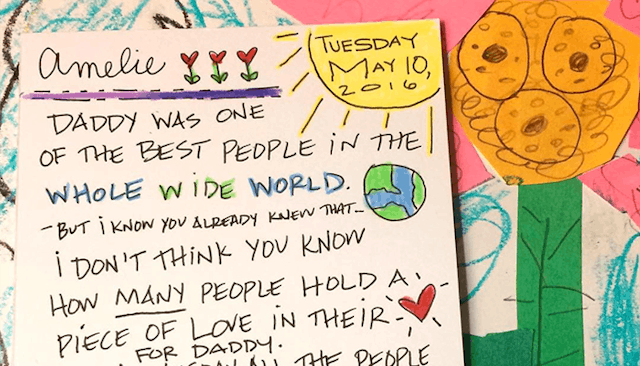 Amelie
TUESDAY
MAY 10,
2016
DADDY WAS ONE
OF THE BEST PEOPLE IN THE
WHOLE WIDE WORLD.
-BUT i KNOW YOU ALREADY KNEW THAT...
i DON'T THINK YOU KNOW
HOW MANY PEOPLE HOLD A
PIECE OF LOVE IN THEIR
FOR DADDY.
ALL THE PEOPLE